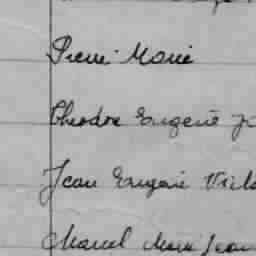 Pierre Marie
Theodore Eugene
Jean Eugene
Marcel Marie Jean